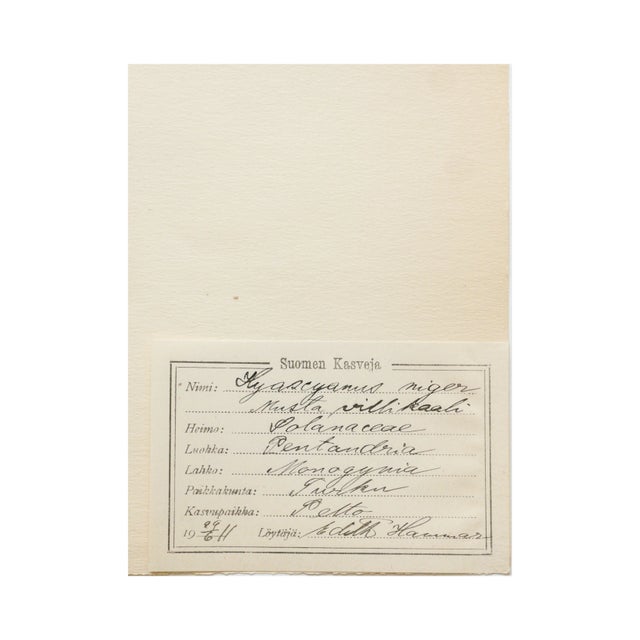 Suomen Kasveja
Nimi: Hyascyamus niger
Musta villikaali
Heimo: Solanaceae
Luokka: Pentandria
Lahko: Monogynia
Paikkakunta: Turku
Kasvupaikka: Pelto
19 29/6 11 Löytäjä: Edith Hammar